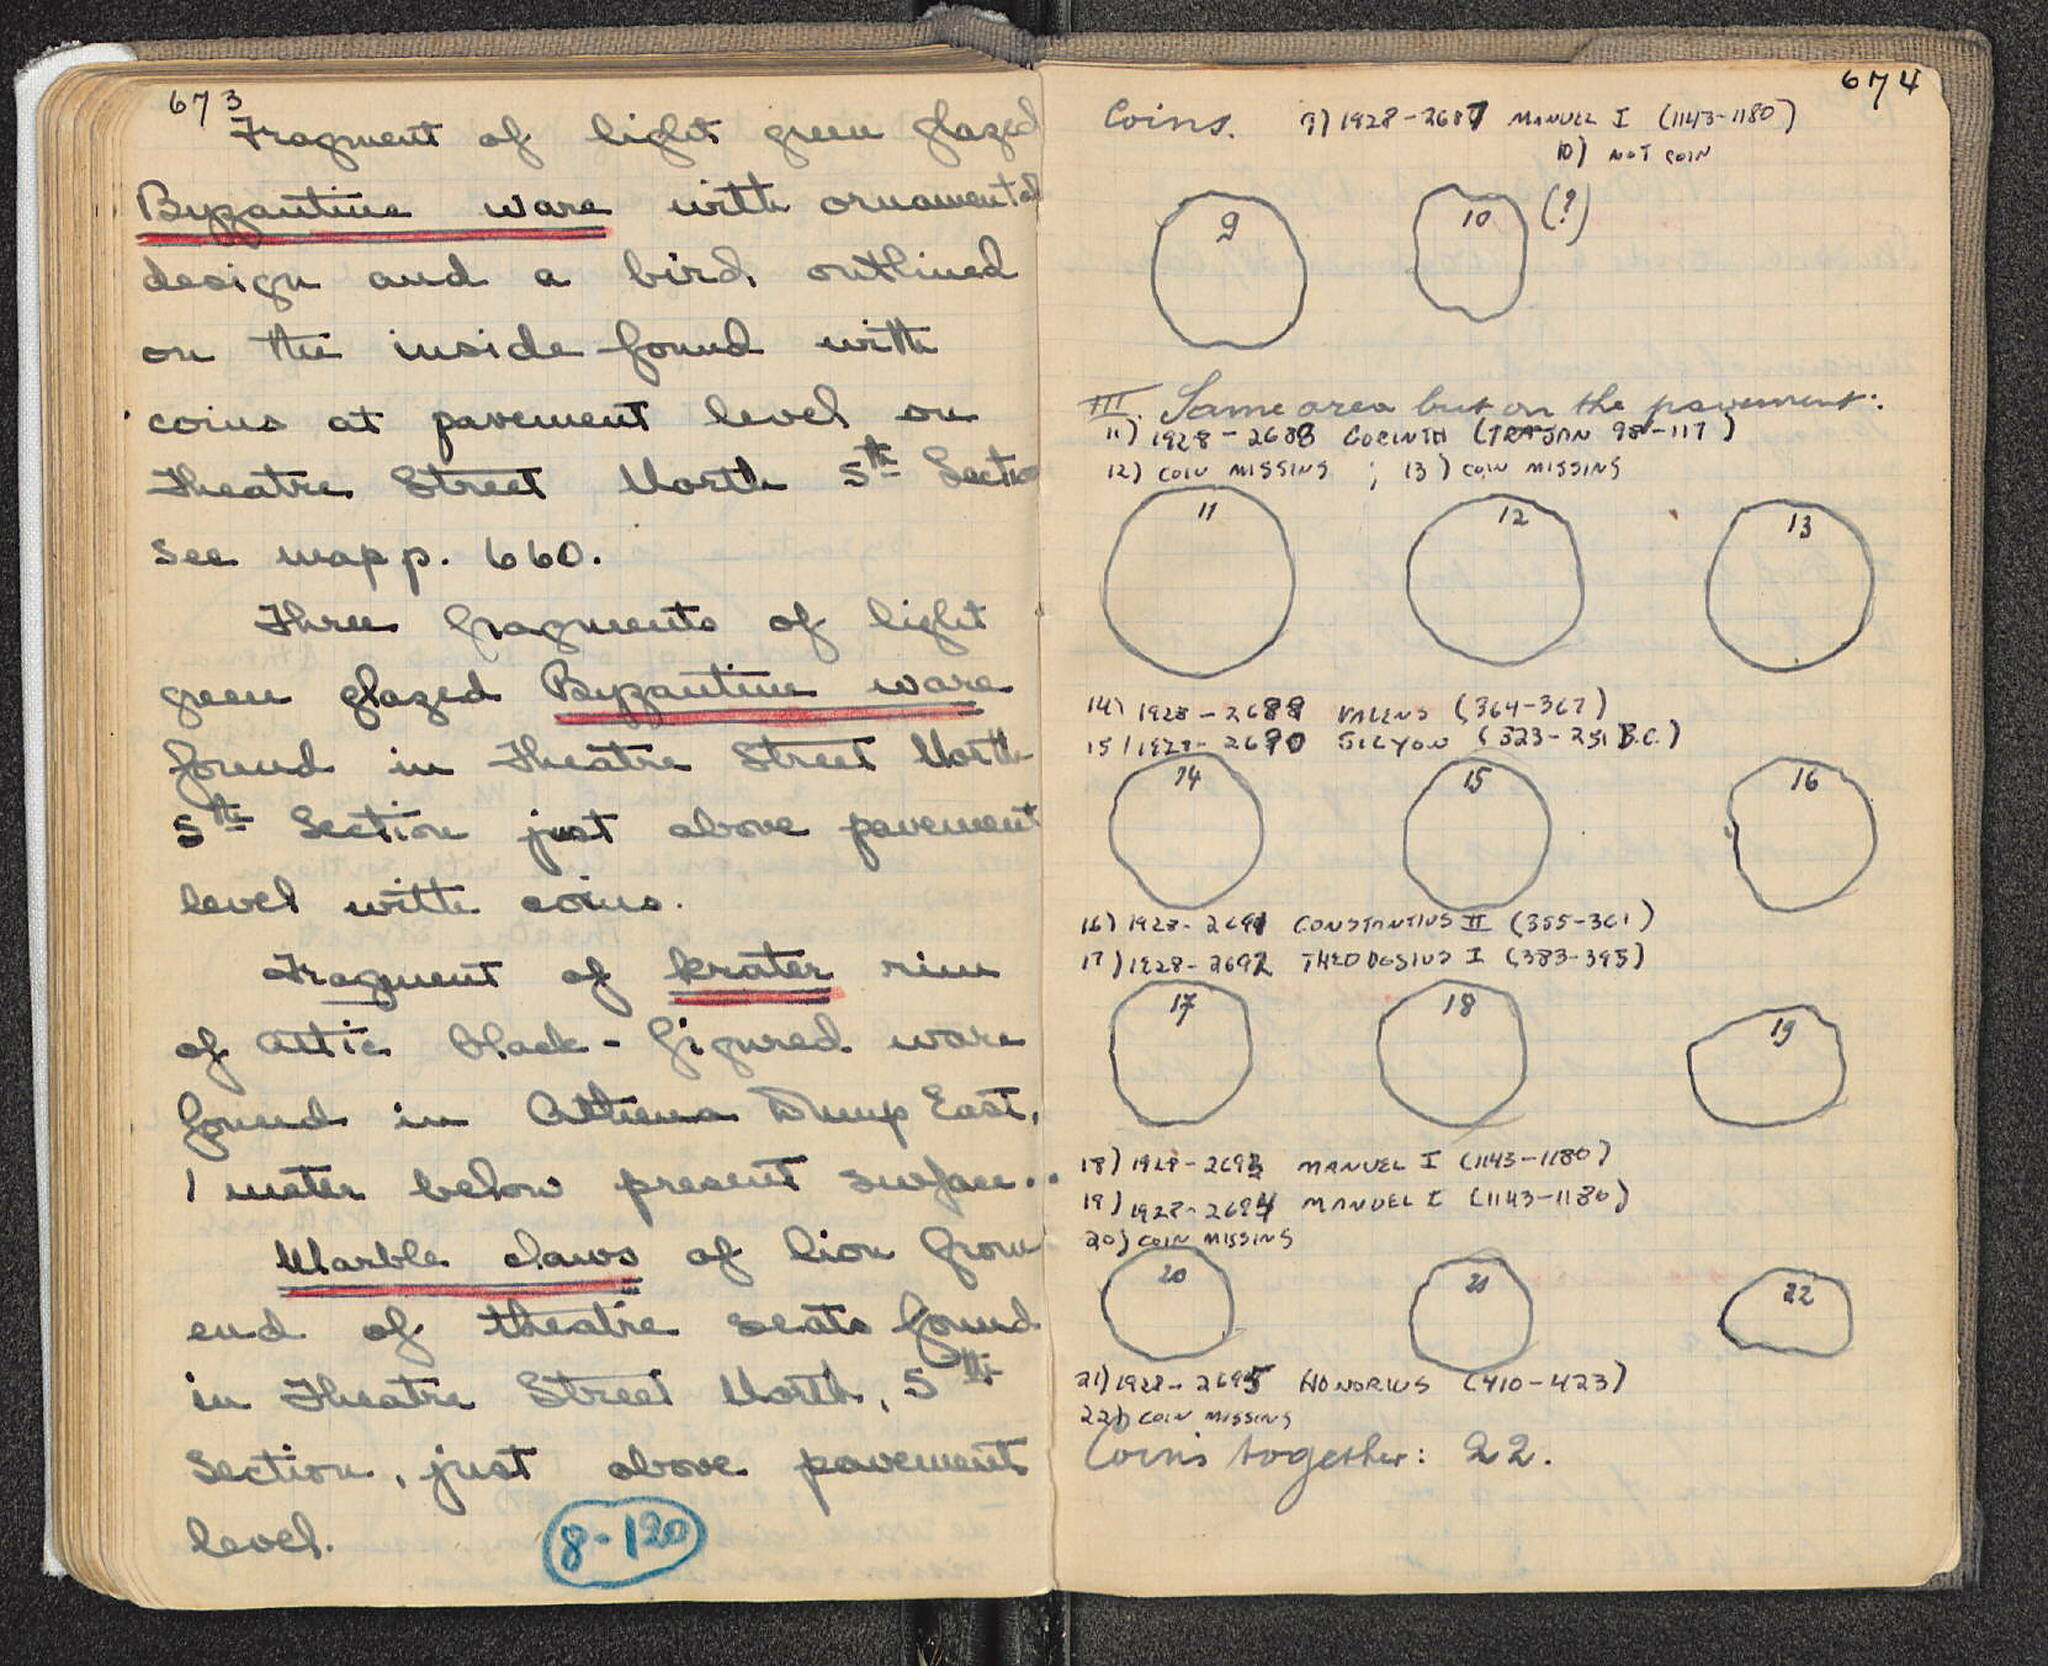 673
Fragment of light green glazed
Byzantine ware with ornamental
design and a bird outlined
on the inside found with
coins at pavement level on
Theatre Street North 5th Section
see map p. 660.
Three fragments of light
green glazed Byzantine ware
found in Theatre Street North
5th Section just above pavement
level with coins.
Fragment of krater rim
of Attic black-figured ware
found in Athena Dump East,
1 meter below present surface..
Marble claws of lion from
end of theatre seats found
in Theatre Street North, 5th
Section, just above pavement
level.
8-120
674
Coins. 9) 1928-2687 MANUEL I (1143-1180)
10) NOT COIN
9 10 (?)
III. Same area but on the pavement:
11) 1928-2688 CORINTH (TRAJAN 98-117)
12) COIN MISSING ; 13) COIN MISSING
11 12 13
14) 1928-2689 VALENS (364-367)
15) 1928-2690 SICYON (323-251 B.C.)
14 15 16
16) 1928-2691 CONSTANTIUS II (355-361)
17) 1928-2692 THEODOSIUS I (383-395)
17 18 19
18) 1928-2693 MANUEL I (1143-1180)
19) 1928-2694 MANUEL I (1143-1180)
20) COIN MISSING
20 21 22
21) 1928-2695 HONORIUS (410-423)
22) COIN MISSING
Coins together: 22.